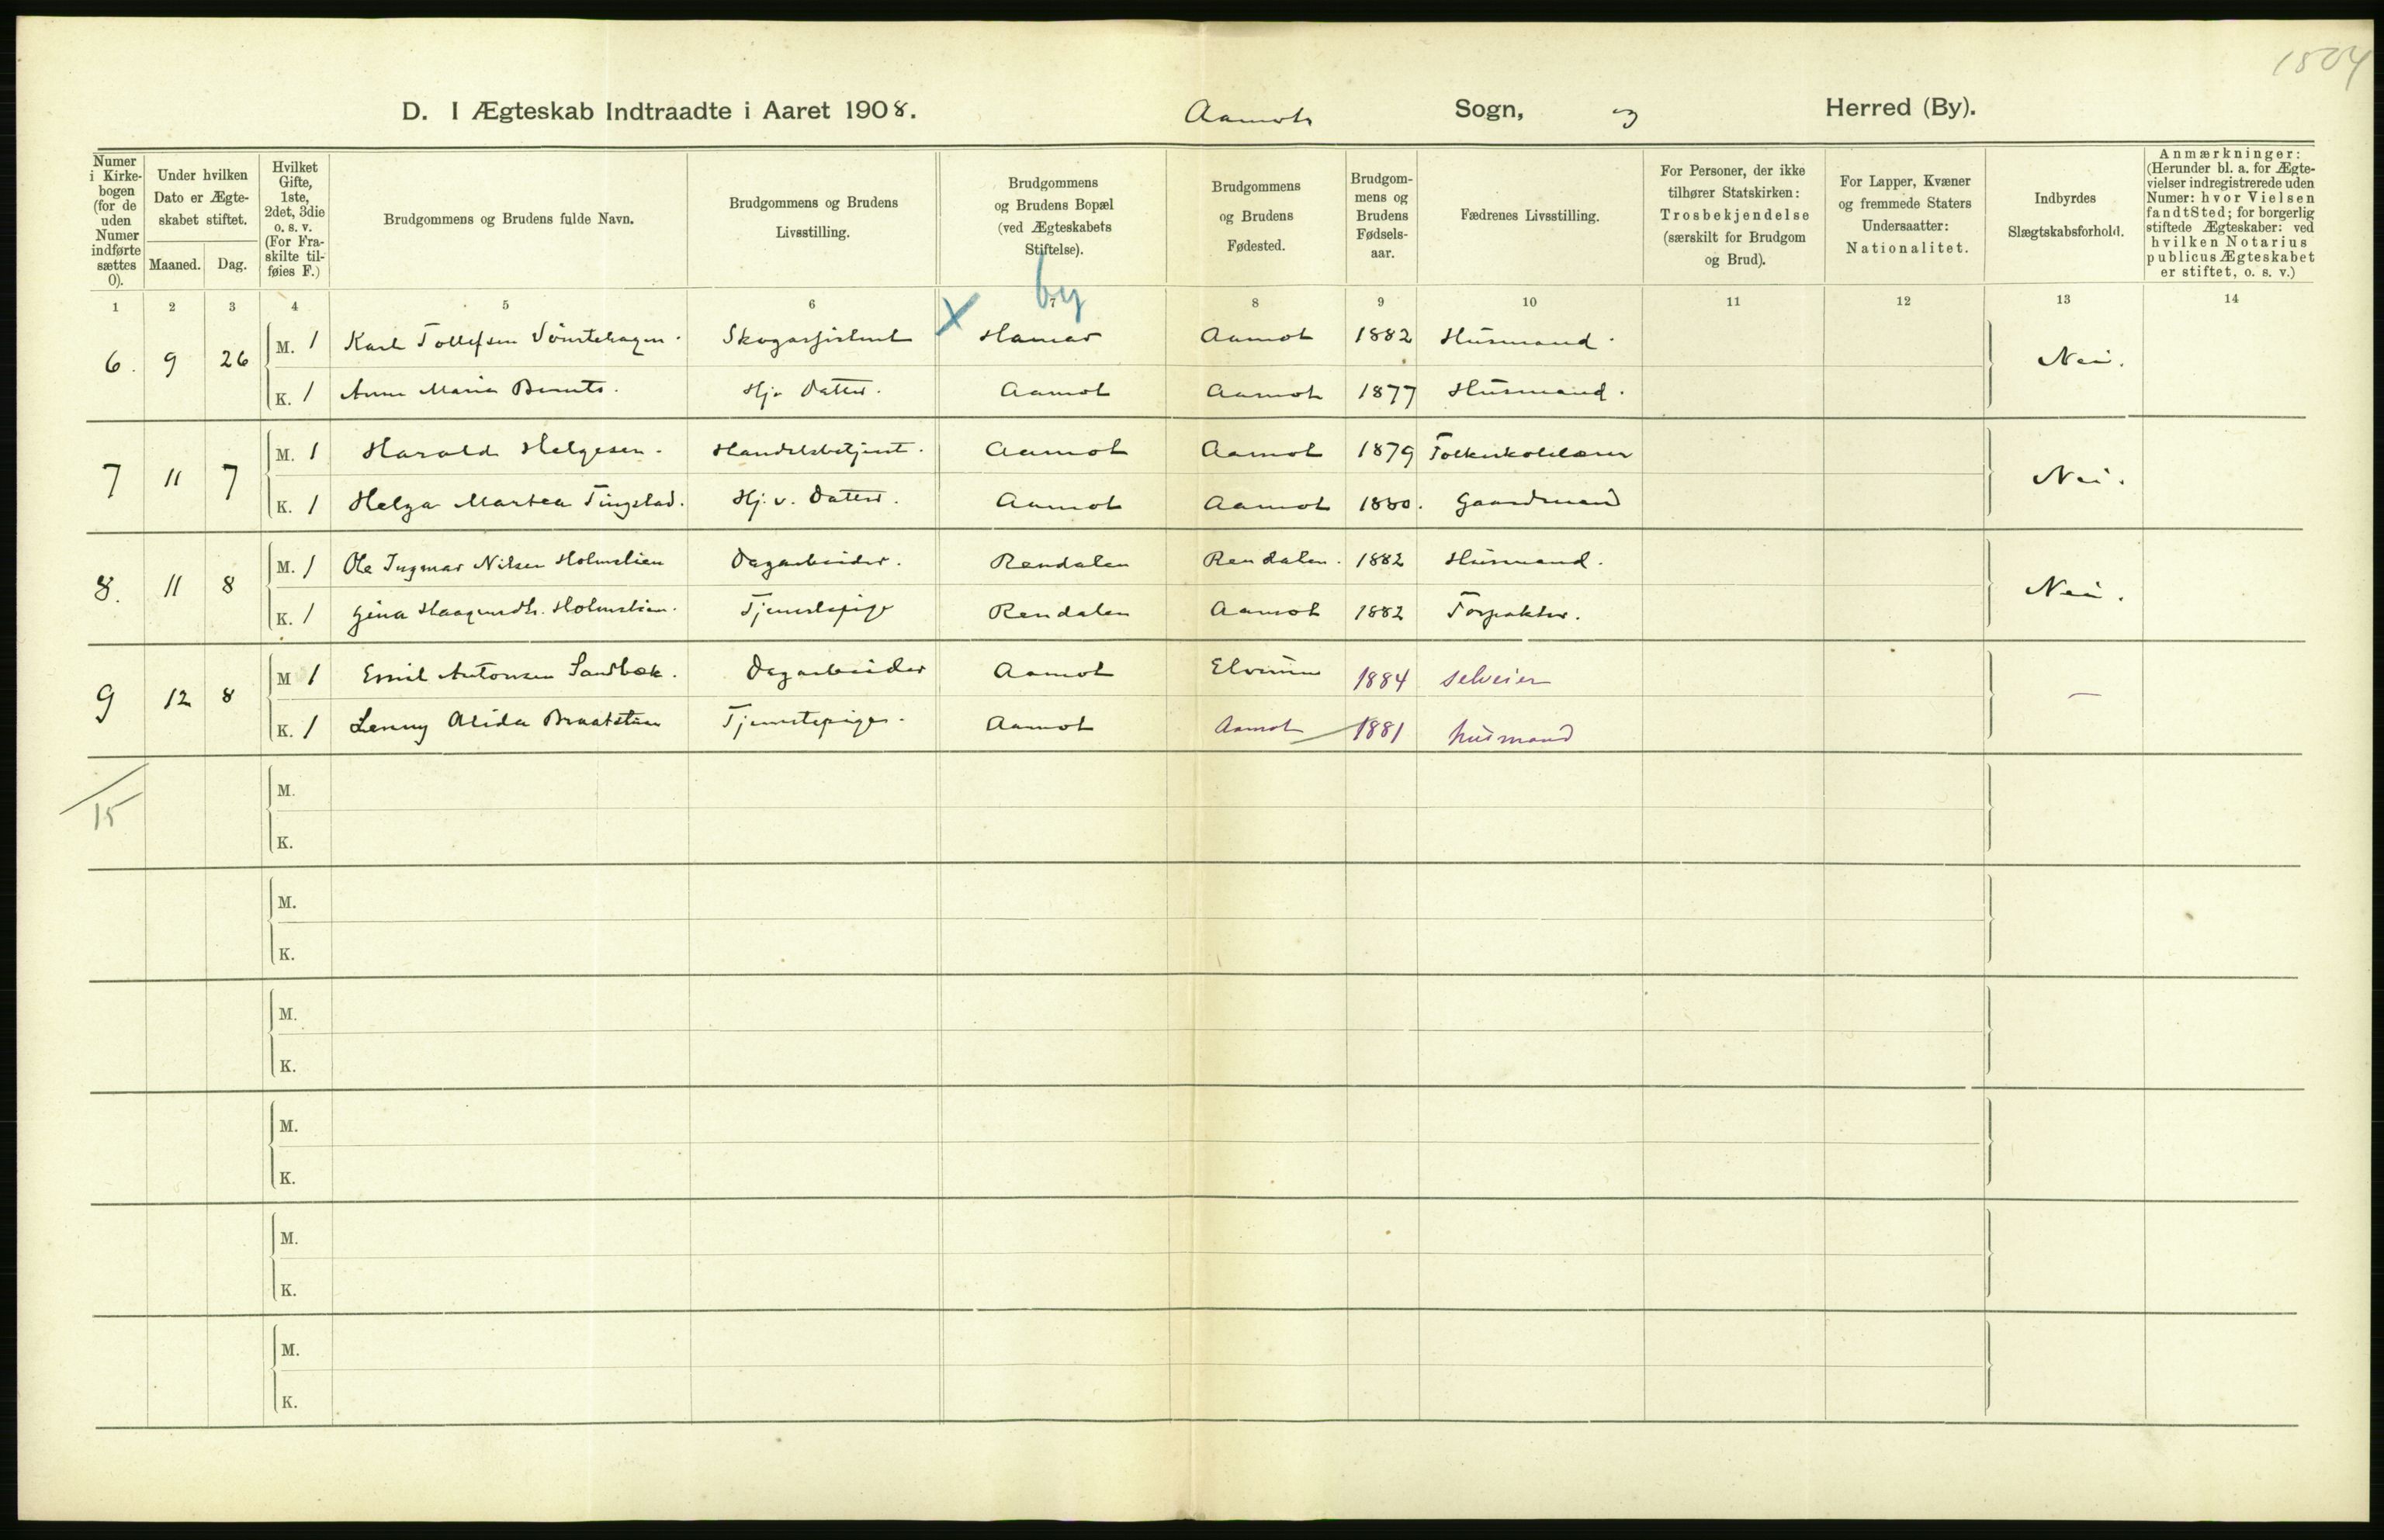 1504
D. I Ægteskab Indtraadte i Aaret 1908. Aamots Sogn, Herred (By).
Numer i Kirkebogen (for de uden Numer indførte sættes 0).
Under hvilken Dato er Ægteskabet stiftet.
Maaned. Dag.
Hvilket Gifte, 1ste, 2det, 3die o. s. v. (For Fraskilte tilføies F.)
Brudgommens og Brudens fulde Navn.
Brudgommens og Brudens Livsstilling.
Brudgommens og Brudens Bopæl (ved Ægteskabets Stiftelse).
Brudgommens og Brudens Fødested.
Brudgommens og Brudens Fødselsaar.
Fædrenes Livsstilling.
For Personer, der ikke tilhører Statskirken: Trosbekjendelse (særskilt for Brudgom og Brud).
For Lapper, Kvæner og fremmede Staters Undersaatter: Nationalitet.
Indbyrdes Slægtskabsforhold.
Anmærkninger: (Herunder bl. a. for Ægtevielser indregistrerede uden Numer: hvor Vielsen fandt Sted; for borgerlig stiftede Ægteskaber: ved hvilken Notarius publicus Ægteskabet er stiftet, o. s. v.)
by
1 2 3 4 5 6 7 8 9 10 11 12 13 14
6. 9 26 M. 1 Karl Tollefsen Skogassistent X Hamar Aamot 1882 Husmand. Nei.
K. 1 Anne Maria Bernts. Hj. Datter. Aamot Aamot 1877 Husmand.
7 11 7 M. 1 Harald Helgesen. Handelsbetjent. Aamot Aamot 1879 Folkeskolelærer Nei.
K. 1 Helga Martea Tingstad. Hj. v. Datter. Aamot Aamot 1880. Gaardmand
8. 11 8 M. 1 Ole Ingmar Nilsen Holmslien Dagarbeider. Rendalen Rendalen. 1882 Husmand. Nei.
K. 1 Gina Haagendtr. Holmslien. Tjenestepige Rendalen Aamot 1882 Forpakter.
9 12 8 M 1 Emil Antonsen Sandbæk. Dagarbeider Aamot Elverum 1884 selveier —
K. 1 Lenny Alida Braatstuen Tjenestepige. Aamot Aamot 1881 husmand
15
M.
K.
M.
K.
M.
K.
M.
K.
M.
K.
M.
K.